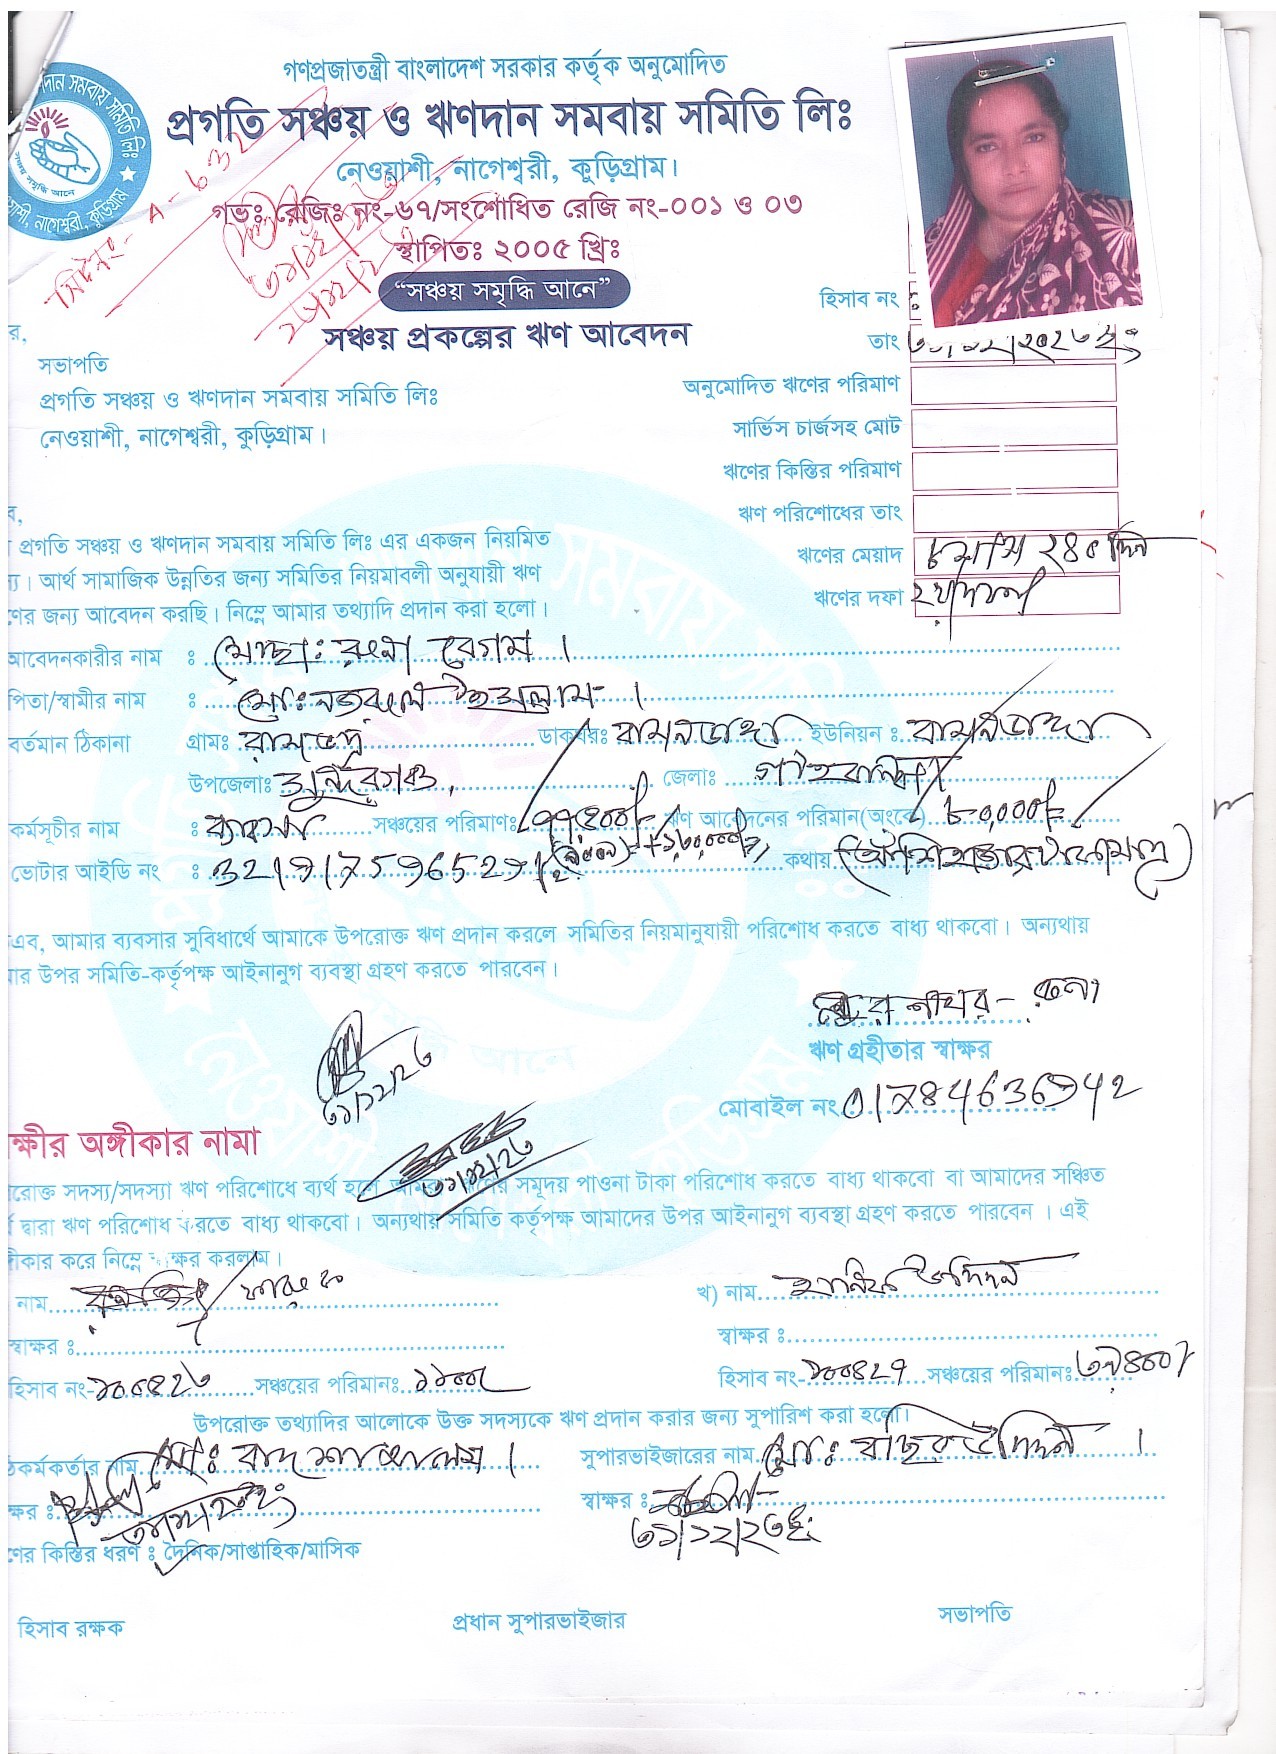 গণপ্রজাতন্ত্রী বাংলাদেশ সরকার কর্তৃক অনুমোদিত
প্রগতি সঞ্চয় ও ঋণদান সমবায় সমিতি লিঃ
নেওয়াশী, নাগেশ্বরী, কুড়িগ্রাম।
গভঃ রেজিঃ নং-৬৭/সংশোধিত রেজি নং-০০১ ও ০৩
স্থাপিতঃ ২০০৫ খ্রিঃ
“সঞ্চয় সমৃদ্ধি আনে”
সঞ্চয় প্রকল্পের ঋণ আবেদন
হিসাব নং :
তাং
র,
সভাপতি
প্রগতি সঞ্চয় ও ঋণদান সমবায় সমিতি লিঃ
নেওয়াশী, নাগেশ্বরী, কুড়িগ্রাম।
অনুমোদিত ঋণের পরিমাণ
সার্ভিস চার্জসহ মোট
ঋণের কিস্তির পরিমাণ
ঋণ পরিশোধের তাং
ঋণের মেয়াদ ৮মাস ২৪০ দিন
ঋণের দফা
ব,
প্রগতি সঞ্চয় ও ঋণদান সমবায় সমিতি লিঃ এর একজন নিয়মিত
্য। আর্থ সামাজিক উন্নতির জন্য সমিতির নিয়মাবলী অনুযায়ী ঋণ
ণের জন্য আবেদন করছি। নিম্নে আমার তথ্যাদি প্রদান করা হলো।
আবেদনকারীর নাম : মোছাঃ রুনা বেগম।
পিতা/স্বামীর নাম : মোঃ নজরুল ইসলাম।
বর্তমান ঠিকানা গ্রামঃ রামভদ্র ডাকঘরঃ বামনডাঙ্গা ইউনিয়ন : বামনডাঙ্গা
উপজেলাঃ সুন্দরগঞ্জ, জেলাঃ গাইবান্ধা
কর্মসূচীর নাম : ব্যবসা সঞ্চয়ের পরিমাণঃ ঋণ আবেদনের পরিমান(অংকে) ৮০,০০০/=
ভোটার আইডি নং : কথায় (আশি হাজার টাকা মাত্র)
এব, আমার ব্যবসার সুবিধার্থে আমাকে উপরোক্ত ঋণ প্রদান করলে সমিতির নিয়মানুযায়ী পরিশোধ করতে বাধ্য থাকবো। অন্যথায়
ার উপর সমিতি-কর্তৃপক্ষ আইনানুগ ব্যবস্থা গ্রহণ করতে পারবেন।
ঋণ গ্রহীতার স্বাক্ষর
মোবাইল নং 01784636942
ক্ষীর অঙ্গীকার নামা
রোক্ত সদস্য/সদস্যা ঋণ পরিশোধে ব্যর্থ হলে সমূদয় পাওনা টাকা পরিশোধ করতে বাধ্য থাকবো বা আমাদের সঞ্চিত
র্থ দ্বারা ঋণ পরিশোধ করতে বাধ্য থাকবো। অন্যথায় সমিতি কর্তৃপক্ষ আমাদের উপর আইনানুগ ব্যবস্থা গ্রহণ করতে পারবেন। এই
ীকার করে নিম্নে স্বাক্ষর করলাম।
নাম
খ) নাম
স্বাক্ষর :
স্বাক্ষর :
হিসাব নং-১০০৪২৬ সঞ্চয়ের পরিমানঃ
হিসাব নং-১০০৪২৭ সঞ্চয়ের পরিমানঃ
উপরোক্ত তথ্যাদির আলোকে উক্ত সদস্যকে ঋণ প্রদান করার জন্য সুপারিশ করা হলো।
ঠকর্মকর্তার নাম মোঃ বাদশা আলম।
সুপারভাইজারের নাম মোঃ বছির উদ্দিন।
ক্ষর :
স্বাক্ষর :
ণের কিস্তির ধরণ : দৈনিক/সাপ্তাহিক/মাসিক
হিসাব রক্ষক
প্রধান সুপারভাইজার
সভাপতি